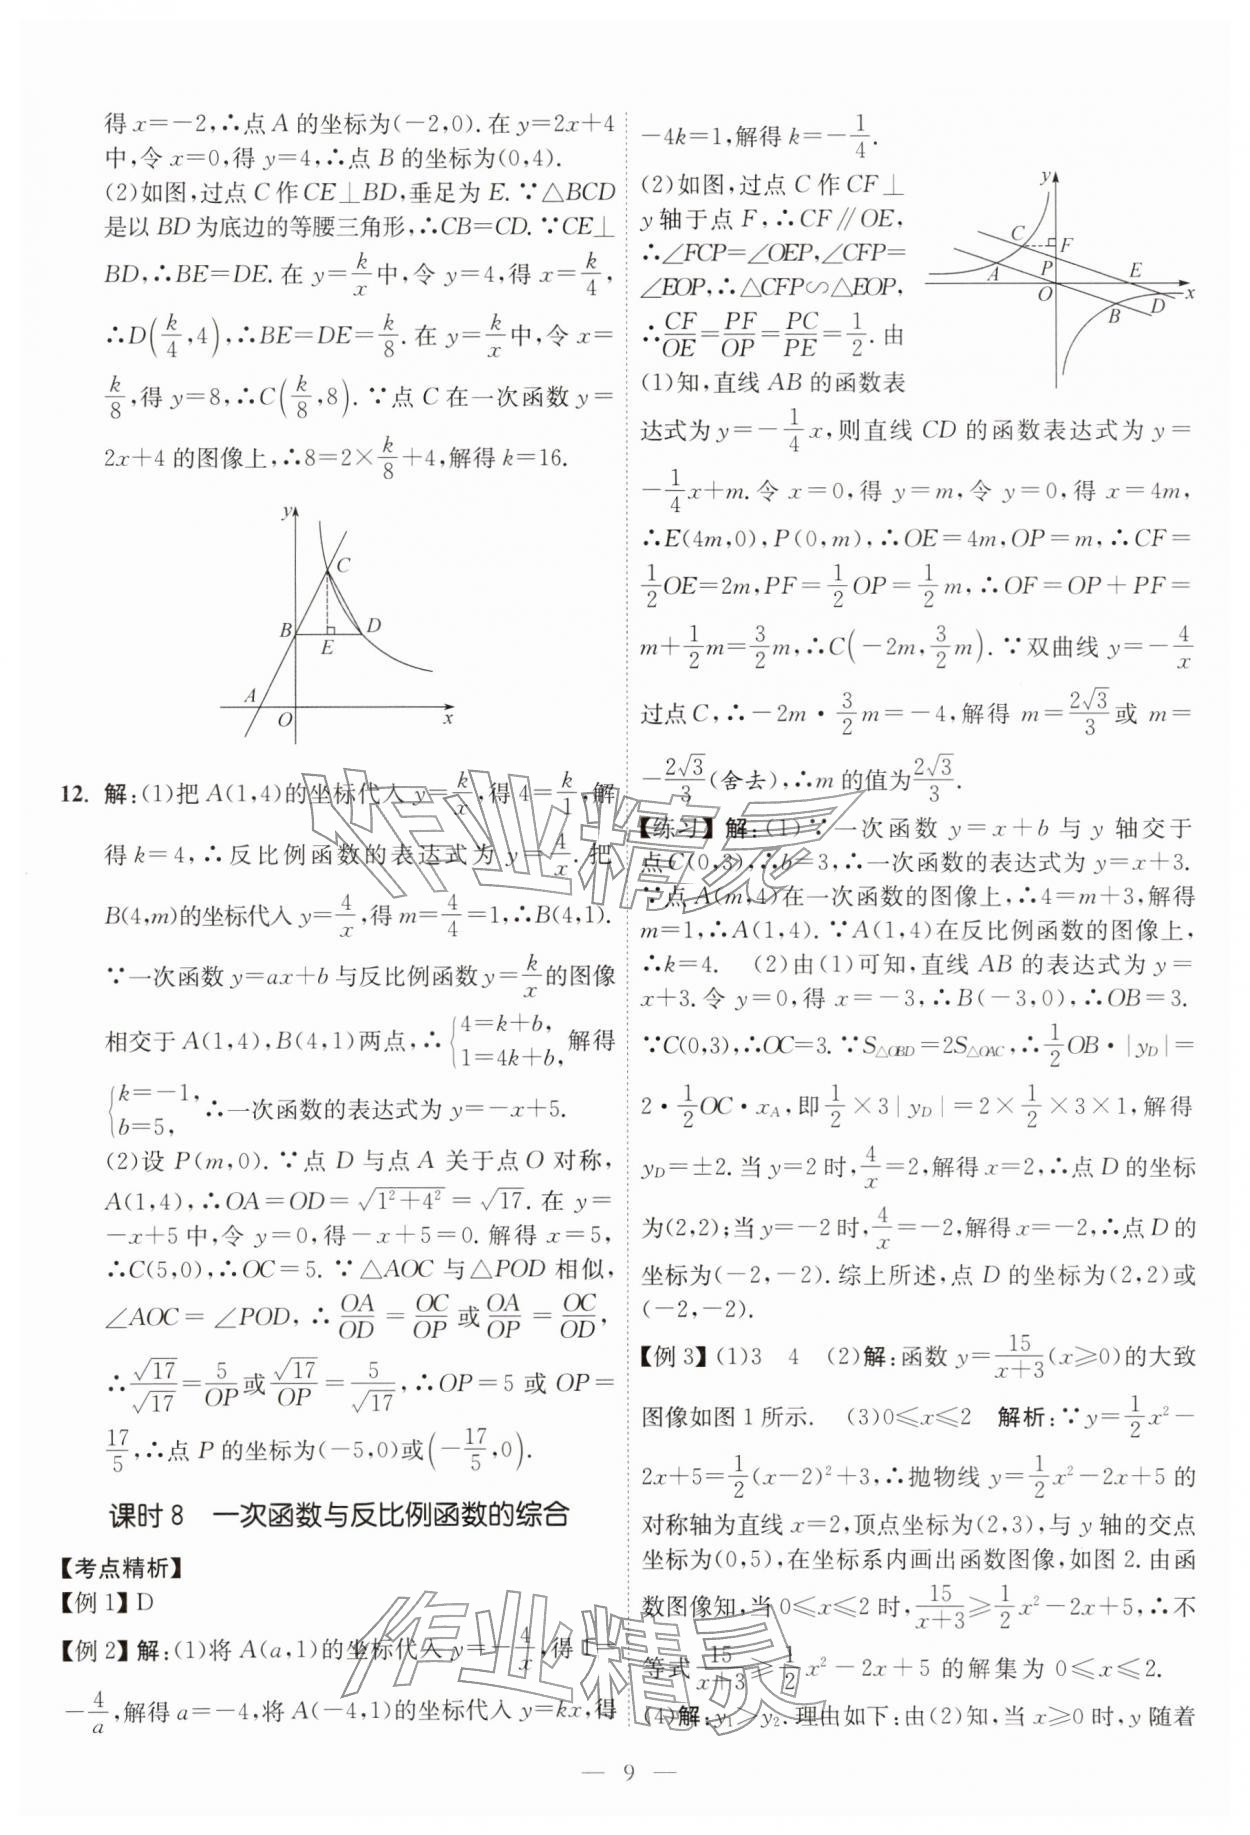 得 x=-2,∴点 A 的坐标为(-2,0).在 y=2x+4
中,令 x=0,得 y=4,∴点 B 的坐标为(0,4).
(2)如图,过点 C 作 CE⊥BD,垂足为 E.∵△BCD
是以 BD 为底边的等腰三角形,∴CB=CD.∵CE⊥
BD,∴BE=DE.在 y=k/x 中,令 y=4,得 x=k/4,
∴D(k/4,4),∴BE=DE=k/8.在 y=k/x 中,令 x=
k/8,得 y=8,∴C(k/8,8).∵点 C 在一次函数 y=
2x+4 的图像上,∴8=2×k/8+4,解得 k=16.
y
C
B
E
D
A
O
x
12. 解:(1)把 A(1,4)的坐标代入 y=k/x,得 4=k/1,解
得 k=4,∴反比例函数的表达式为 y=4/x.把
B(4,m)的坐标代入 y=4/x,得 m=4/4=1,∴B(4,1).
∵一次函数 y=ax+b 与反比例函数 y=k/x 的图像
相交于 A(1,4),B(4,1)两点,∴{4=k+b, 1=4k+b, 解得
{k=-1, b=5, ∴一次函数的表达式为 y=-x+5.
(2)设 P(m,0).∵点 D 与点 A 关于点 O 对称,
A(1,4),∴OA=OD=√(1²+4²)=√17.在 y=
-x+5 中,令 y=0,得-x+5=0.解得 x=5,
∴C(5,0),∴OC=5.∵△AOC 与△POD 相似,
∠AOC=∠POD,∴OA/OD=OC/OP 或 OA/OP=OC/OD,
∴√17/√17=5/OP 或 √17/OP=5/√17,∴OP=5 或 OP=
17/5,∴点 P 的坐标为(-5,0)或(-17/5,0).
课时 8 一次函数与反比例函数的综合
【考点精析】
【例 1】D
【例 2】解:(1)将 A(a,1)的坐标代入 y=-4/x,得 1=
-4/a,解得 a=-4,将 A(-4,1)的坐标代入 y=kx,得
-4k=1,解得 k=-1/4.
(2)如图,过点 C 作 CF⊥
y 轴于点 F,∴CF∥OE,
∴∠FCP=∠OEP,∠CFP=
∠EOP,∴△CFP∽△EOP,
∴CF/OE=PF/OP=PC/PE=1/2.由
(1)知,直线 AB 的函数表
y
C
F
A
P
E
O
B
D
x
达式为 y=-1/4x,则直线 CD 的函数表达式为 y=
-1/4x+m.令 x=0,得 y=m,令 y=0,得 x=4m,
∴E(4m,0),P(0,m),∴OE=4m,OP=m,∴CF=
1/2OE=2m,PF=1/2OP=1/2m,∴OF=OP+PF=
m+1/2m=3/2m,∴C(-2m,3/2m).∵双曲线 y=-4/x
过点 C,∴-2m·3/2m=-4,解得 m=2√3/3 或 m=
-2√3/3(舍去),∴m 的值为 2√3/3.
【练习】解:(1)∵一次函数 y=x+b 与 y 轴交于
点 C(0,3),∴b=3,∴一次函数的表达式为 y=x+3.
∵点 A(m,4)在一次函数的图像上,∴4=m+3,解得
m=1,∴A(1,4).∵A(1,4)在反比例函数的图像上,
∴k=4. (2)由(1)可知,直线 AB 的表达式为 y=
x+3.令 y=0,得 x=-3,∴B(-3,0),∴OB=3.
∵C(0,3),∴OC=3.∵S△OBD=2S△OAC,∴1/2OB·|yD|=
2·1/2OC·xA,即 1/2×3|yD|=2×1/2×3×1,解得
yD=±2.当 y=2 时,4/x=2,解得 x=2,∴点 D 的坐标
为(2,2);当 y=-2 时,4/x=-2,解得 x=-2,∴点 D 的
坐标为(-2,-2).综上所述,点 D 的坐标为(2,2)或
(-2,-2).
【例 3】(1)3 4 (2)解:函数 y=15/(x+3)(x≥0)的大致
图像如图 1 所示. (3)0≤x≤2 解析:∵y=1/2x²-
2x+5=1/2(x-2)²+3,∴抛物线 y=1/2x²-2x+5 的
对称轴为直线 x=2,顶点坐标为(2,3),与 y 轴的交点
坐标为(0,5),在坐标系内画出函数图像,如图 2.由函
数图像知,当 0≤x≤2 时,15/(x+3)≥1/2x²-2x+5,∴不
等式 15/(x+3)≥1/2x²-2x+5 的解集为 0≤x≤2.
(4)解:y₁>y₂.理由如下:由(2)知,当 x≥0 时,y 随着
— 9 —
作业精灵
作业精灵